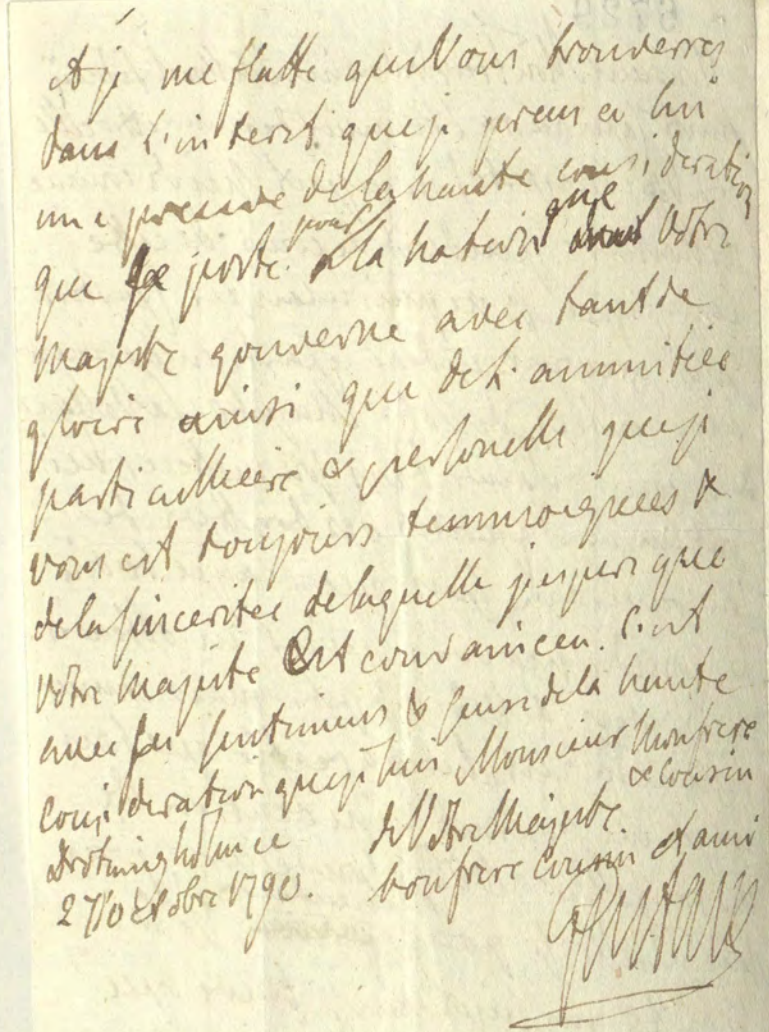 et je me flatte que Vous trouverres
dans l'interet que je prens a lui
une preuve de la haute consideration
que je porte pour la nation que Votre
Majeste gouverne avec tant de
gloire ainsi que de l'ammitiée
particulliere & personelle que je
vous est toujours temmoignees &
de la sinceritee de laquelle j'espere que
Votre Majeste Est convaincu. C'est
avec ses sentimens & ceux de la haute
consideration que je suis Monsieur Mon frere
& Cousin
Drotningholm ce
27 Octobre 1790.
de Votre Majeste.
bon frere Cousin et ami
Gustave